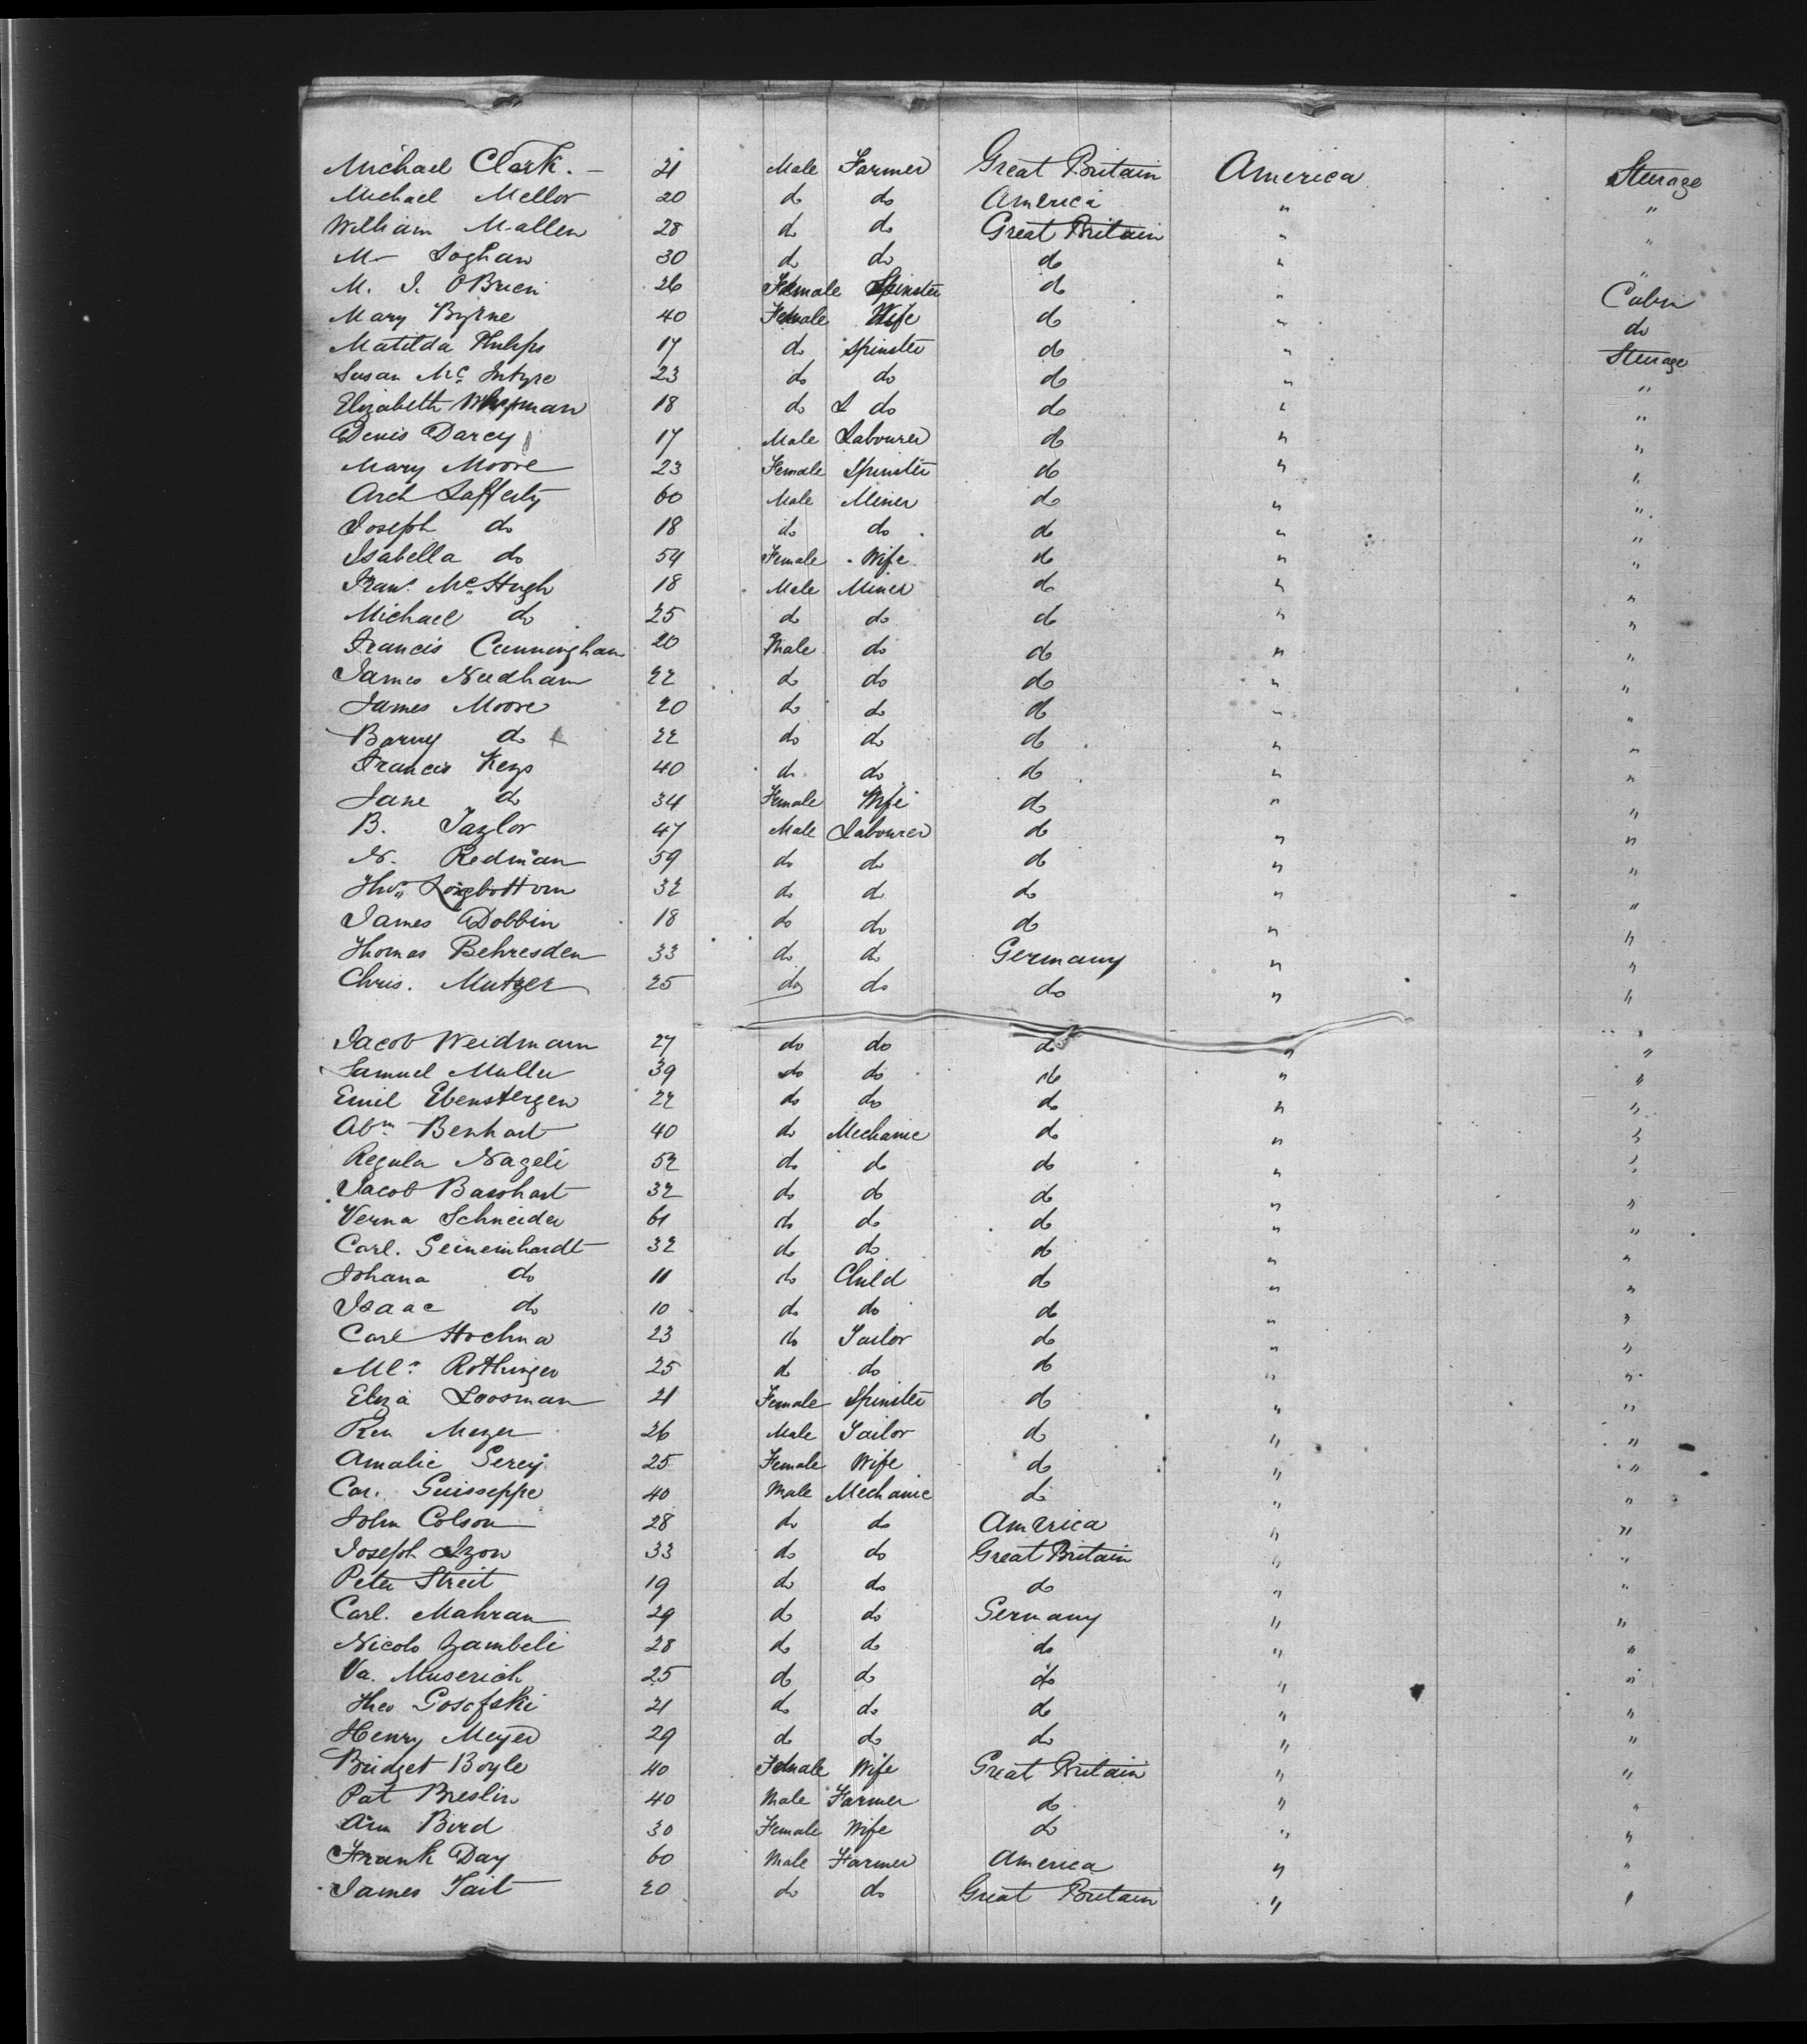 Michael Clark. – 21 Male Farmer Great Britain America Sterage
Michael Mellor 20 do do America " "
William Mallen 28 do do Great Britain " "
M– Loghan 30 do do do " "
M. J. OBrien 26 Female Spinster do " Cabin
Mary Byrne 40 Female Wife do " do
Matilda Philips 17 do Spinster do " Sterage
Susan Mc Intyre 23 do do do " "
Elizabeth 18 do do do " "
Denis Darcy 17 Male Labourer do " "
Mary Moore 23 Female Spinster do " "
Arch Lafferty 60 Male Miner do " "
Joseph do 18 do do do " "
Isabella do 54 Female Wife do " "
Frans Mc Hugh 18 Male Miner do " "
Michael do 25 do do do " "
Francis Cunningham 20 Male do do " "
James Needham 22 do do do " "
James Moore 20 do do do " "
Barny do 22 do do do " "
Francis Keys 40 do do do " "
Jane do 34 Female Wife do " "
B. Taylor 47 Male Labourer do " "
N. Redman 59 do do do " "
Thos Longbottom 32 do do do " "
James Dobbin 18 do do do " "
Thomas Behresden 33 do do Germany " "
Chris. Mutzer 25 do do do " "
Jacob Weidmann 27 do do do " "
Samuel Muller 39 do do do " "
Emil Ebenstergen 22 do do do " "
Abm Benhart 40 do Mechanic do " "
Regula Nageli 52 do do do " "
Jacob Basshart 32 do do do " "
Verna Schneider 61 do do do " "
Carl. Geineinhardt 32 do do do " "
Johana do 11 do Child do " "
Isaac do 10 do do do " "
Carl Hochna 23 do Tailor do " "
Rothinger 25 do do do " "
Eliza Loosman 21 Female Spinster do " "
Meyer 26 Male Tailor do " "
Amalie Gerey 25 Female Wife do " "
Car. Guisseppe 40 Male Mechanic do " "
John Colson 28 do do America " "
Joseph Izon 33 do do Great Britain " "
Peter Streit 19 do do do " "
Carl. Mahran 29 do do Germany " "
Nicolo Zambeli 28 do do do " "
Va. Muserich 25 do do do " "
Theo Gosofski 21 do do do " "
Henry Meyer 29 do do do " "
Bridget Boyle 40 Female Wife Great Britain " "
Pat Breslin 40 Male Farmer do " "
Ann Bird 30 Female Wife do " "
Frank Day 60 Male Farmer America " "
James Tait 20 do do Great Britain " "